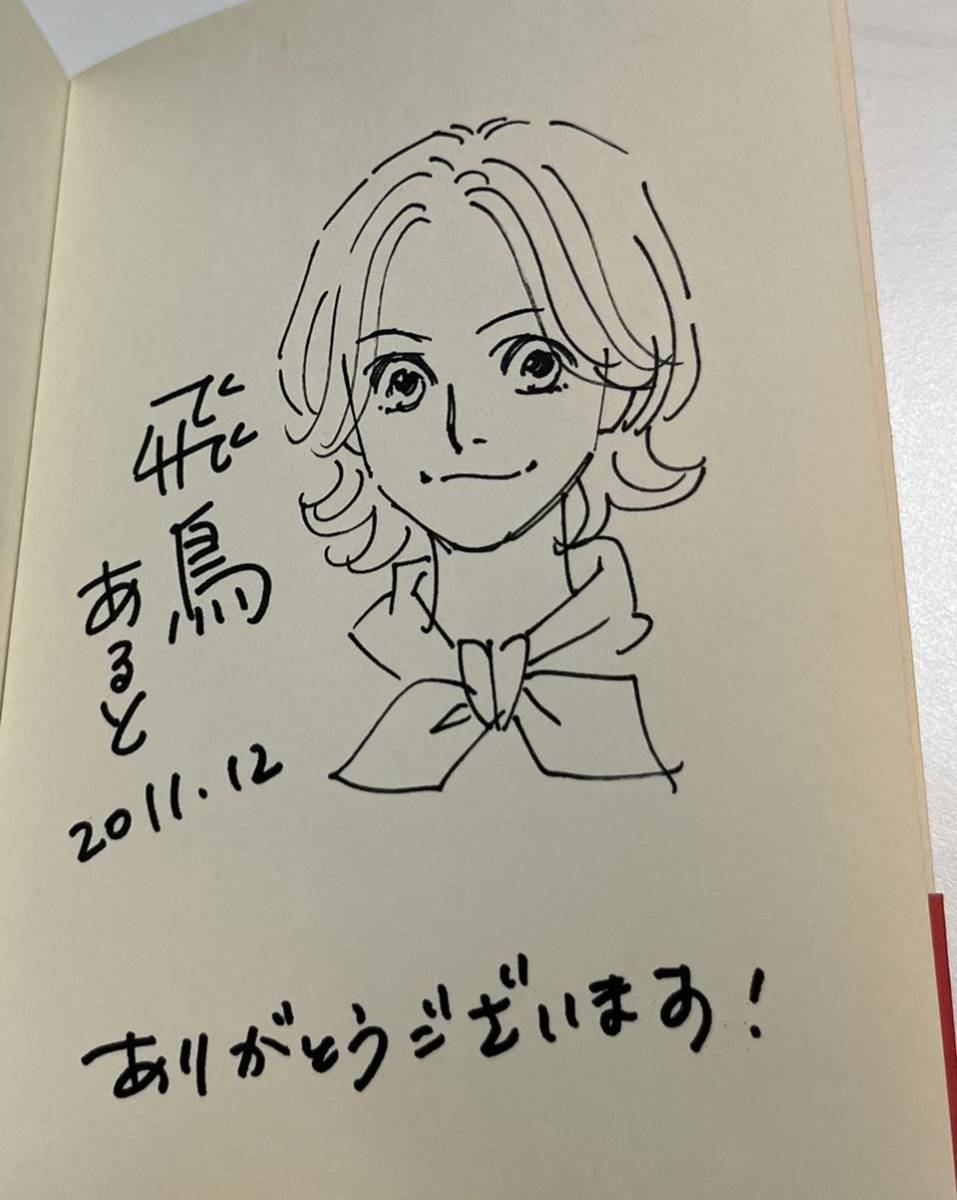 飛鳥
あると
2011.12
ありがとうございます!